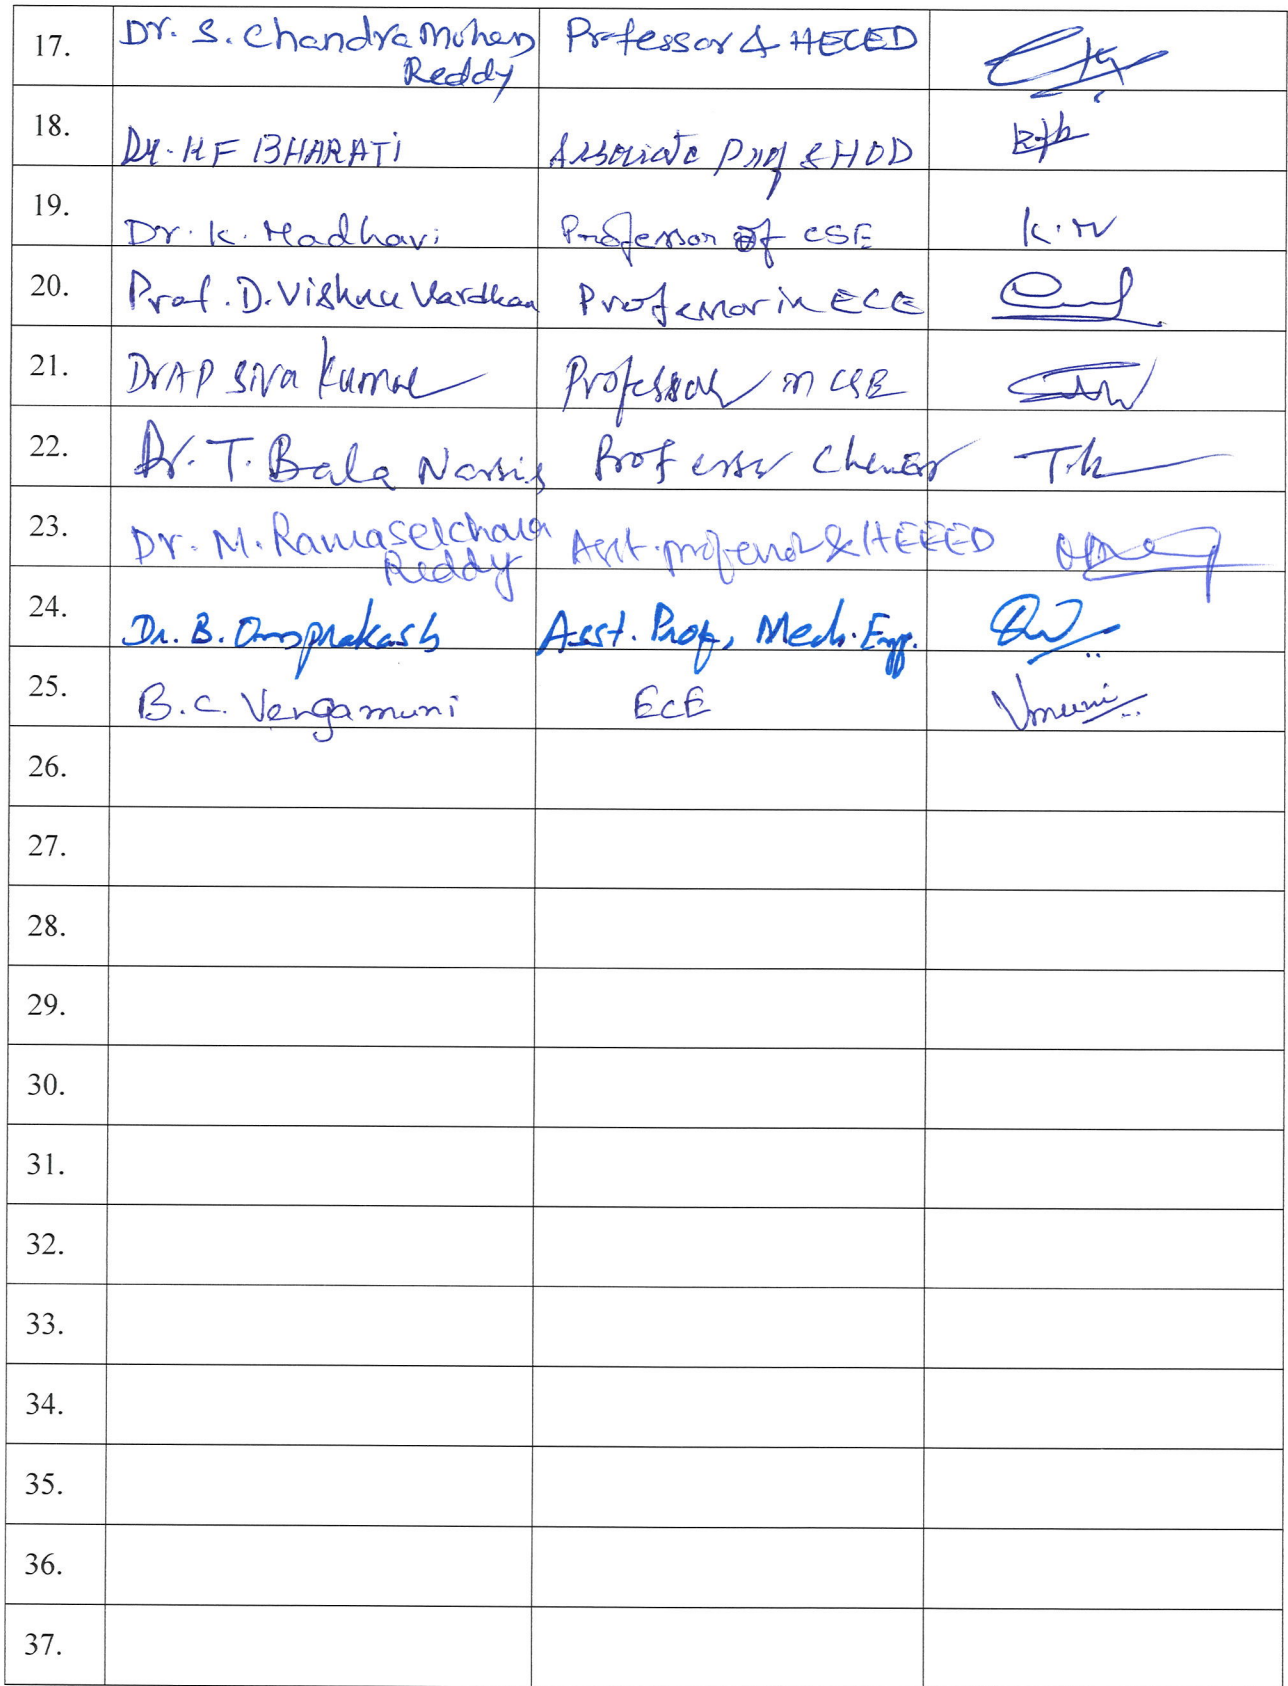 17. Dr. S. Chandra Mohan Professor & HECED
Reddy
18. Dr. KF BHARATI Associate Prof & HOD
19. Dr. K. Madhavi Professor of CSE K.M
20. Prof. D. Vishnu Vardhan Professor in ECE
21. Dr AP Siva Kumar Professor in CSE
22. Dr. T. Bala Narsis Professor
23. Dr. M. Ramasekhara Asst. professor & HEEED
Reddy
24. Dr. B. Omprakash Asst. Prof, Mech. Engg.
25. B.C. Vengamuni ECE Vmuni
26.
27.
28.
29.
30.
31.
32.
33.
34.
35.
36.
37.